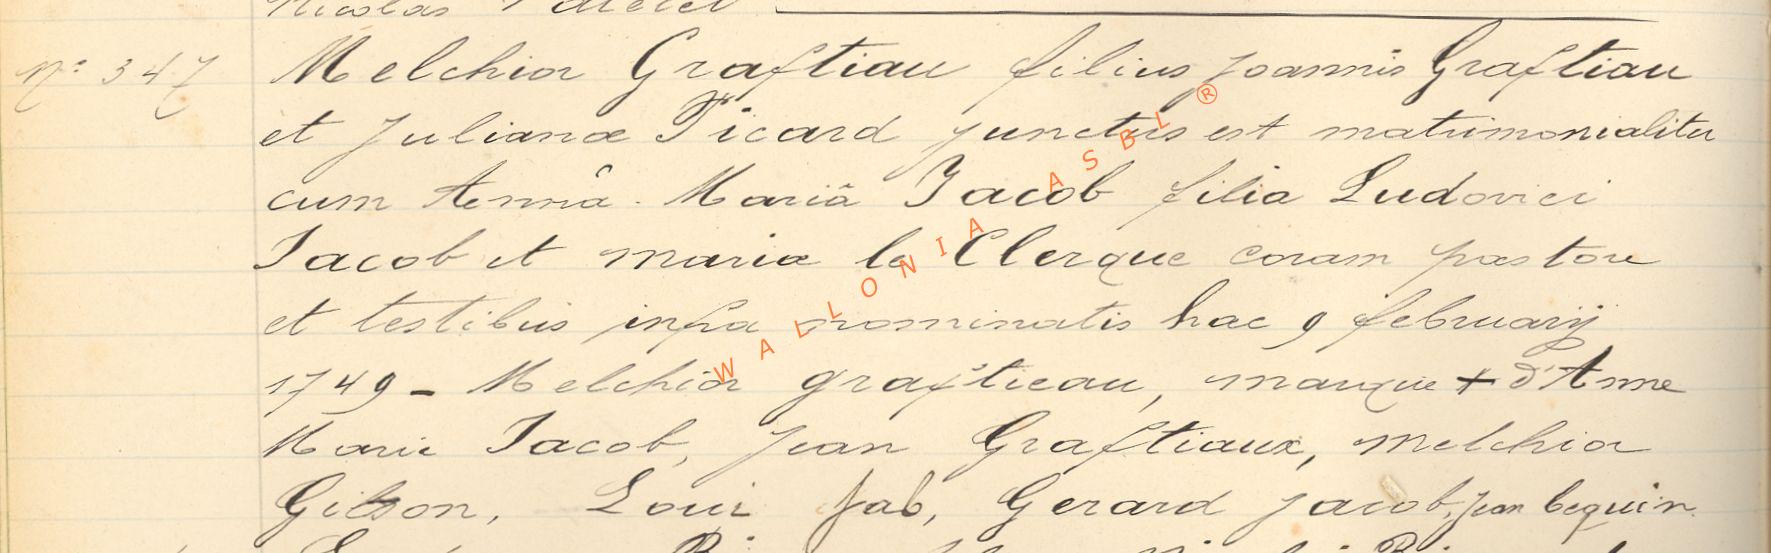 Nicolas
N° 347 Melchior Graftiau filius Joannis Graftiau
et Julianæ Picard junctus est matrimonialiter
cum Annâ Mariâ Jacob filia Ludovici
Jacob et mariæ le Clerque coram pastore
et testibus infra nominatis hac 9 februarij
1749 - Melchior graftieau, marque + d'Anne
Marie Jacob, Jean Graftiaux, Melchior
Gilson, Loui Jab, Gerard Jacob, Jean bequin.
WALLONIA ASBL ®